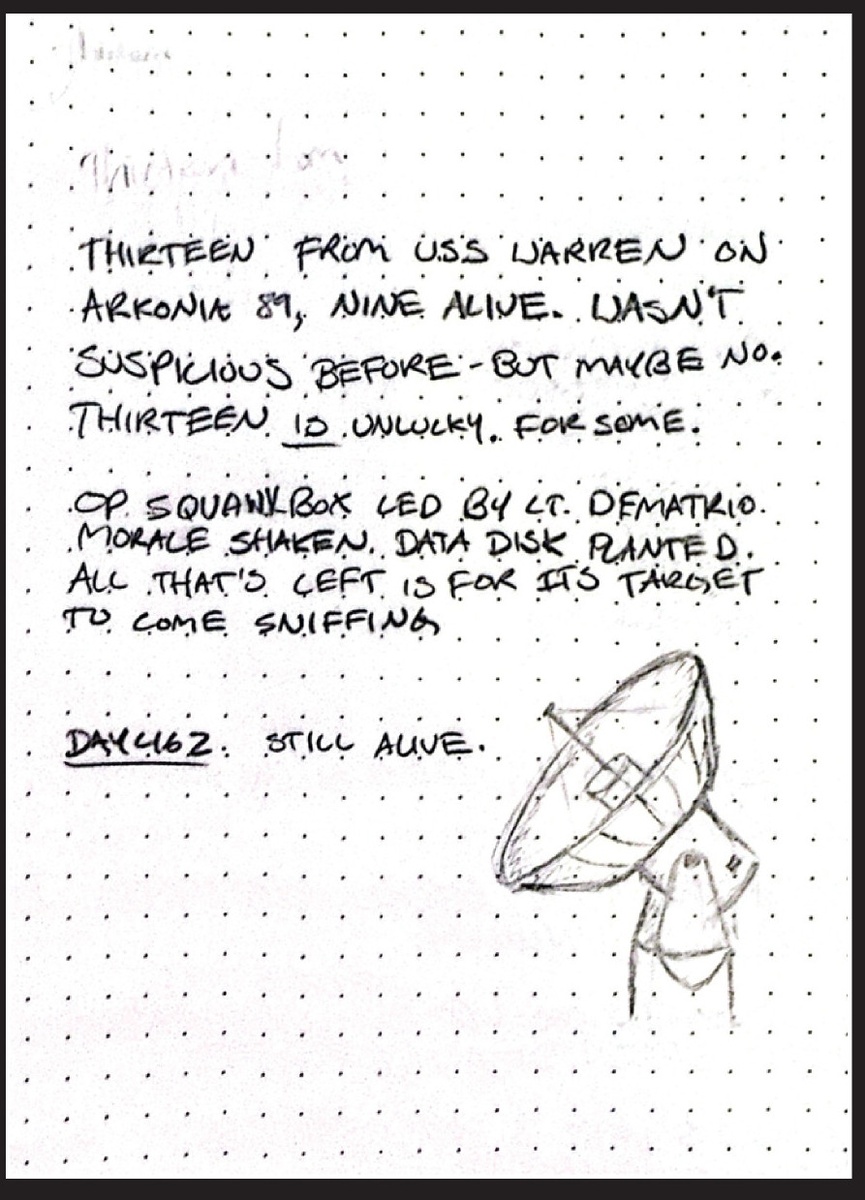 THIRTEEN FROM USS WARREN ON
ARKONIA 89, NINE ALIVE. WASN'T
SUSPICIOUS BEFORE - BUT MAYBE NO.
THIRTEEN IS UNLUCKY. FOR SOME.
OP SQUAWKBOX LED BY LT. DEMATRIO.
MORALE SHAKEN. DATA DISK PLANTED.
ALL THAT'S LEFT IS FOR ITS TARGET
TO COME SNIFFING
DAY 462: STILL ALIVE.